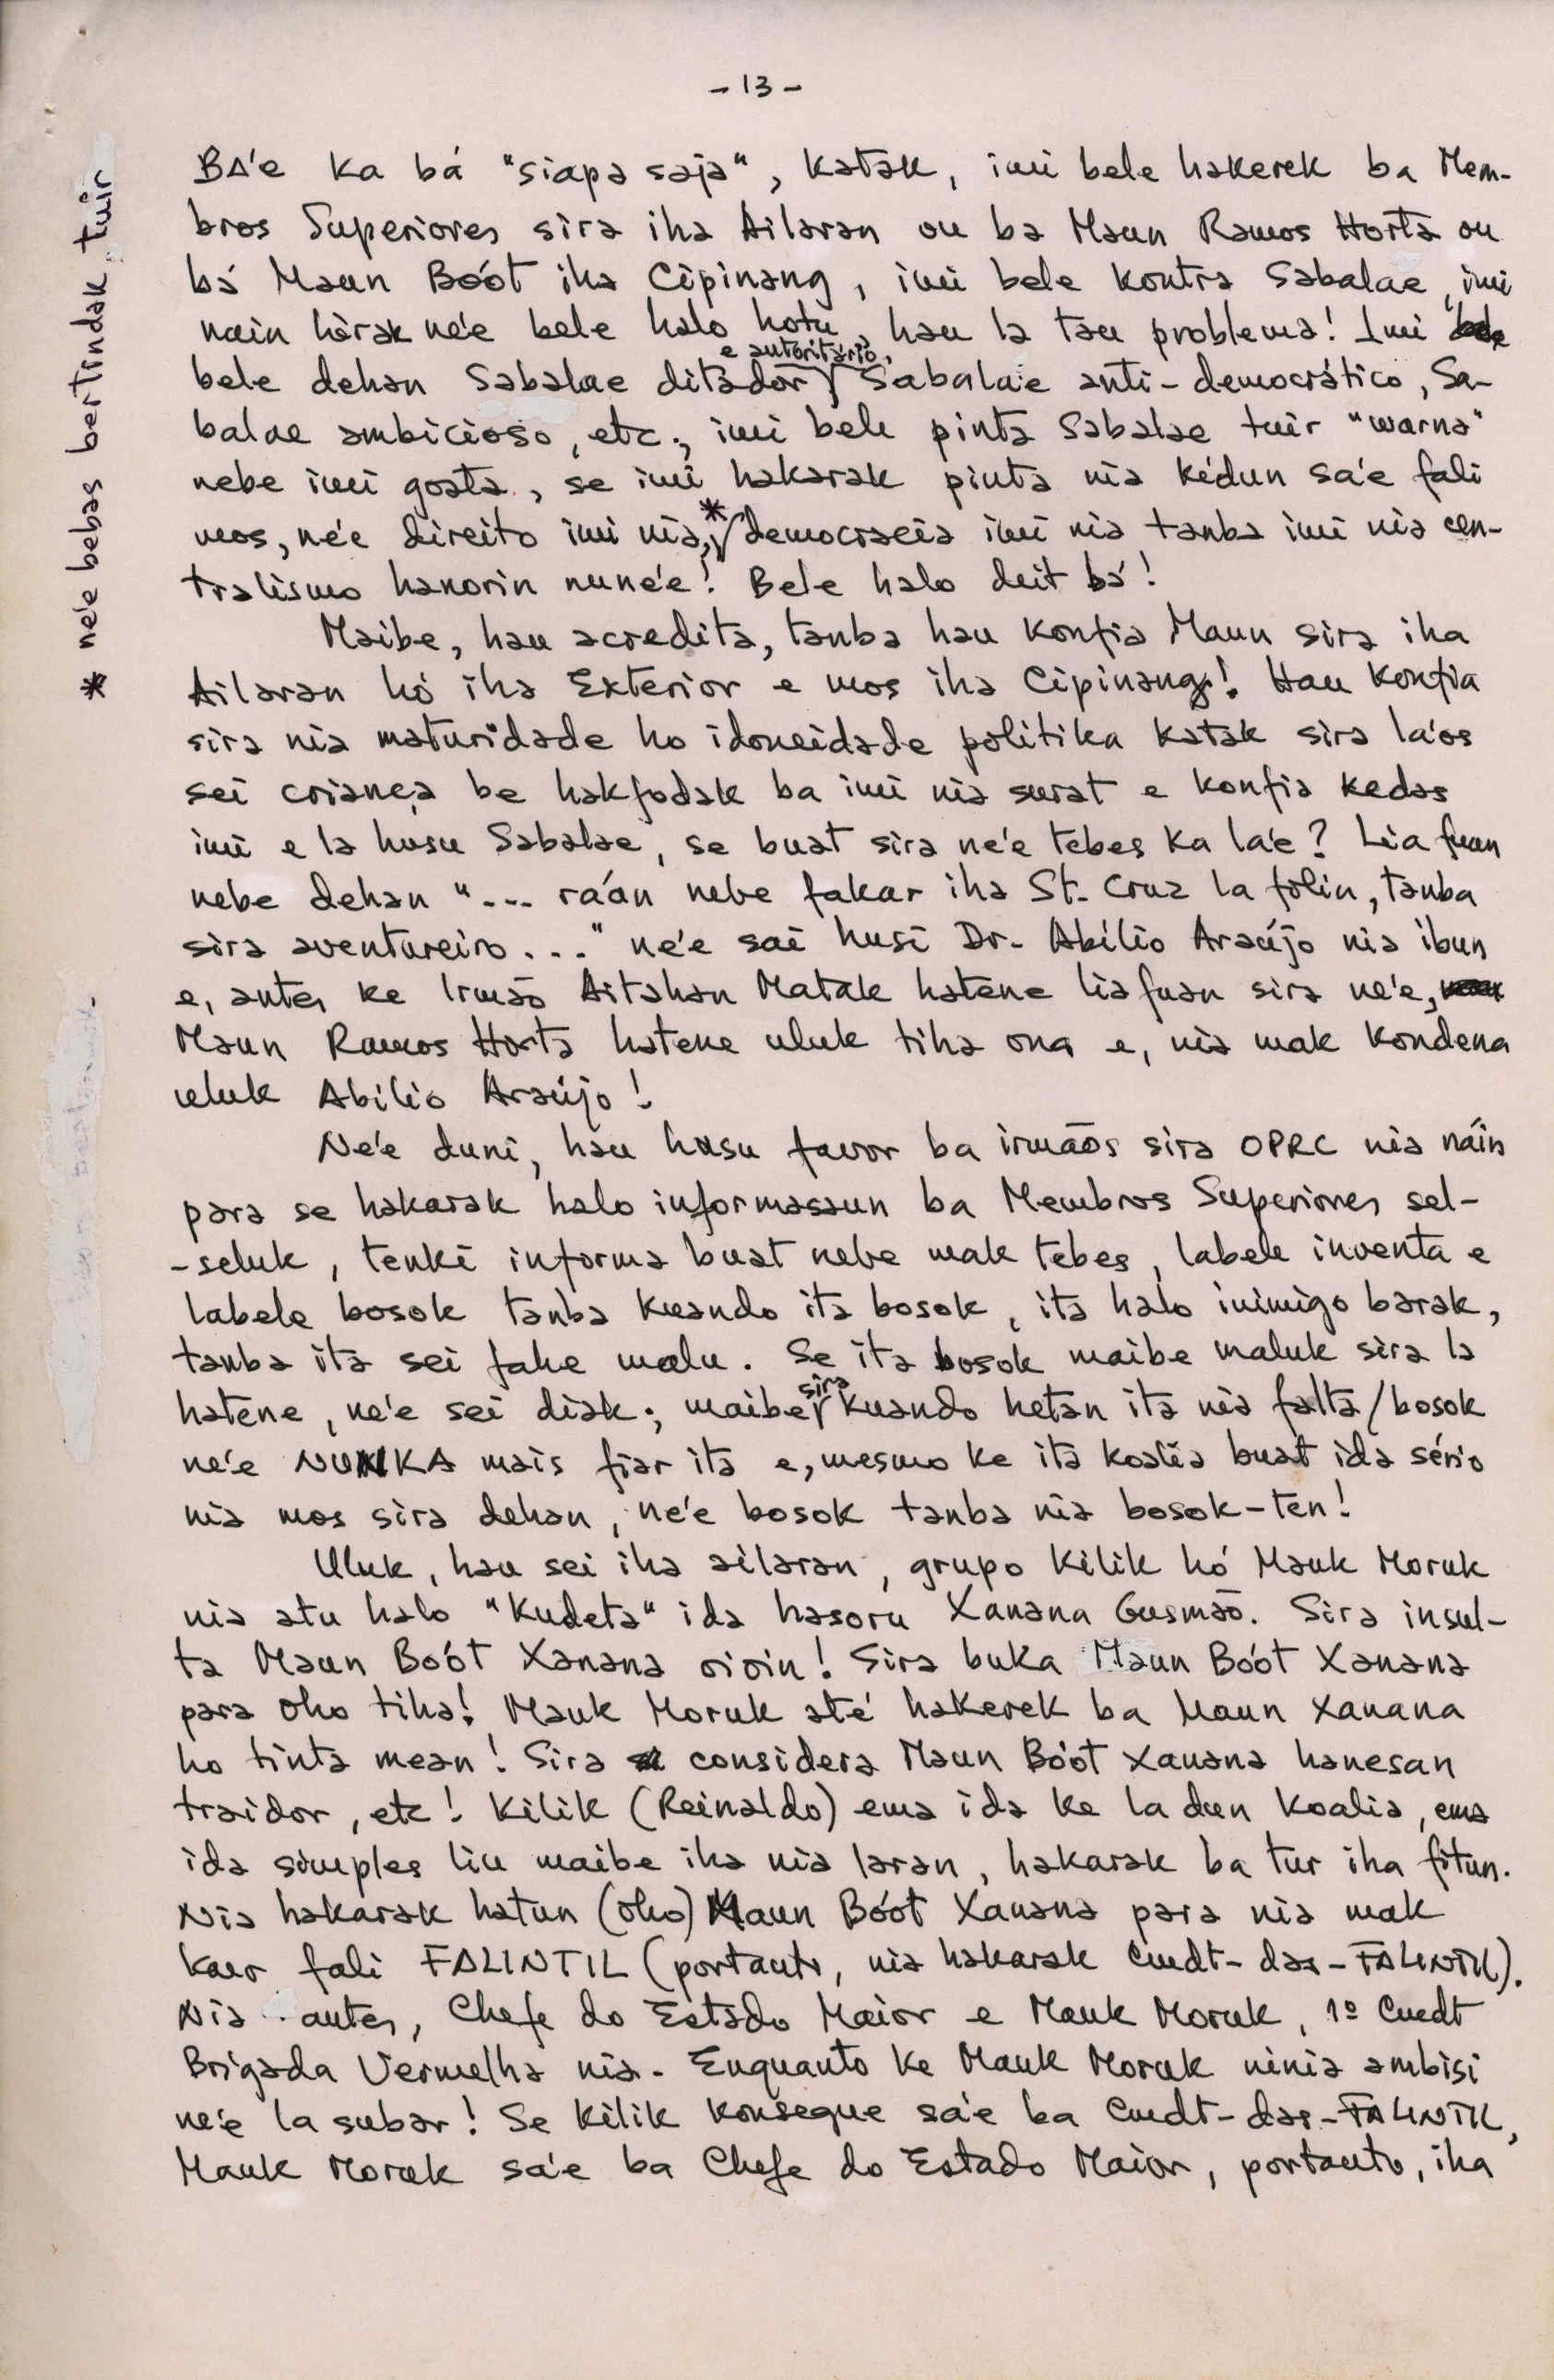 - 13 -
BA'e ka bá "siapa saja", katak, imi bele hakerek ba Mem-
bros Superiores sira iha Ailaran ou ba Maun Ramos Horta ou
bá Maun Boót iha Cipinang, imi bele kontra Sabalae, imi
nain hirak ne'e bele halo hotu, hau la tau problema! Imi
bele dehan Sabalae ditador e autoritário, Sabalae anti-democrático, Sa-
balae ambicioso, etc., imi bele pinta Sabalae tuir "warna"
nebe imi gosta, se imi hakarak pinta nia kédun sa'e fali
mos, ne'e direito imi nia,* democracia imi nia tanba imi nia cen-
tralismo hanorin nune'e! Bele halo deit bá!
Maibe, hau acredita, tanba hau konfia Maun sira iha
Ailaran hó iha Exterior e mos iha Cipinang! Hau konfia
sira nia maturidade ho idoneidade politika katak sira la'os
sei criança be hakfodak ba imi nia surat e konfia kedas
imi e la husu Sabalae, se buat sira ne'e tebes ka la'e? Lia fuan
nebe dehan "... ra'án nebe fakar iha St. Cruz la folin, tanba
sira aventureiro..." ne'e sai husi Dr. Abílio Araújo nia ibun
e, antes ke Irmão Aitahan Matak hatene liafuan sira ne'e,
Maun Ramos Horta hatene uluk tiha ona e, nia mak kondena
uluk Abílio Araújo!
Ne'e duni, hau husu favor ba irmãos sira OPRC nia náin
para se hakarak halo informasaun ba Membros Superiores sel-
-seluk, tenki informa buat nebe mak tebes, labele inventa e
labele bosok tanba kuando ita bosok, ita halo inimigo barak,
tanba ita sei fahe malu. Se ita bosok maibe maluk sira la
hatene, ne'e sei diak; maibe sira kuando hetan ita nia falta/bosok
ne'e NUNKA mais fiar ita e, mesmo ke ita koalia buat ida sério
nia mos sira dehan, ne'e bosok tanba nia bosok-ten!
Uluk, hau sei iha ailaran, grupo Kilik hó Mauk Moruk
nia atu halo "kudeta" ida hasoru Xanana Gusmão. Sira insul-
ta Maun Boót Xanana oioin! Sira buka Maun Boót Xanana
para oho tiha! Mauk Moruk até hakerek ba Maun Xanana
ho tinta mean! Sira considera Maun Boót Xanana hanesan
traidor, etc! Kilik (Reinaldo) ema ida ke la dun koalia, ema
ida simples liu maibe iha nia laran, hakarak ba tur iha fitun.
Nia hakarak hatun (oho) Maun Boót Xanana para nia mak
kaer fali FALINTIL (portanto, nia hakarak Cmdt-das-FALINTIL).
Nia antes, Chefe do Estado Maior e Mauk Moruk, 1º Cmdt
Brigada Vermelha nia. Enquanto ke Mauk Moruk ninia ambisi
ne'e la subar! Se Kilik konsegue sa'e ba Cmdt-das-FALINTIL,
Mauk Moruk sa'e ba Chefe do Estado Maior, portanto, iha
* ne'e bebas bertindak tuir